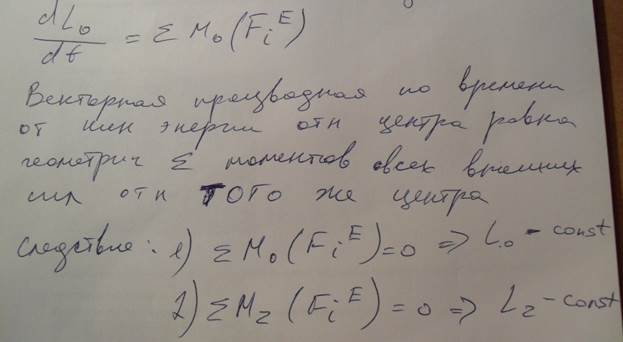 dL₀/dt = Σ M₀(Fᵢᴱ)
Векторная прозводная по времени
от кин энергии отн центра равна
геометрич Σ моментов всех внешних
сил отн ТОГО же центра
Следствие: 1) Σ M₀(Fᵢᴱ)=0 => L₀ - const
2) Σ M_z (Fᵢᴱ) = 0 => L_z - const